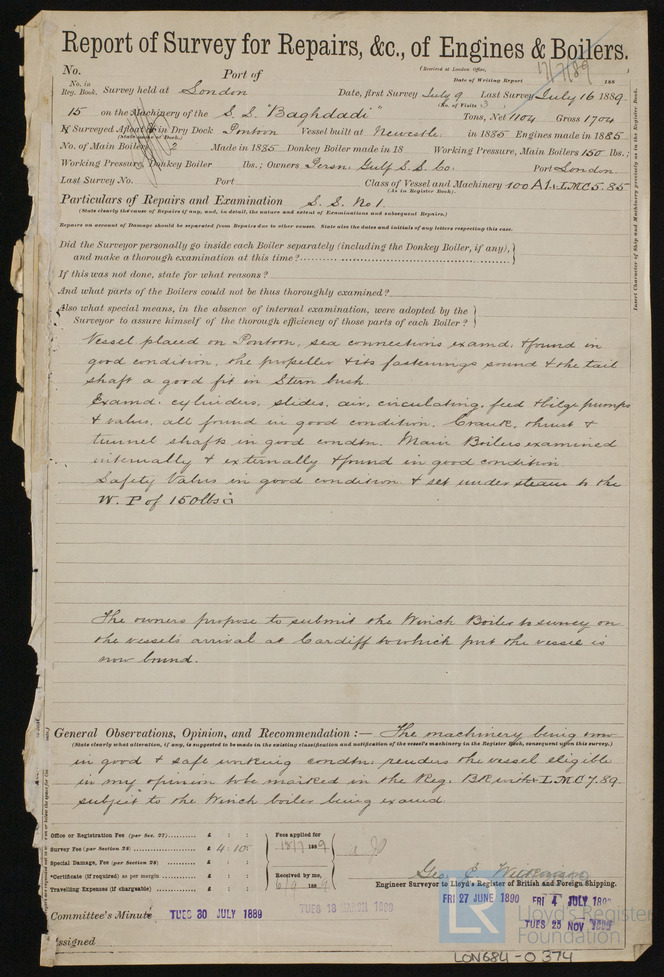 Report of Survey for Repairs, &c., of Engines & Boilers.
(Received at London Office, 17/7/89
No. Port of Date of Writing Report 188
No. in Reg. Book. Survey held at London Date, first Survey July 9 Last Survey July 16 1889.
(No. of Visits 3
15 on the Machinery of the S.S. "Baghdadi" Tons, Net 1104 Gross 1704
Surveyed Afloat or in Dry Dock Pontoon Vessel built at Newcstle in 1885 Engines made in 1885
(State name of Dock.)
No. of Main Boilers 2 Made in 1885 Donkey Boiler made in 18 Working Pressure, Main Boilers 150 lbs.;
Working Pressure, Donkey Boiler lbs.; Owners Persn. Gulf S.S. Co. Port London.
Last Survey No. Port Class of Vessel and Machinery 100 A1. LMC 5.85
(As in Register Book).
Particulars of Repairs and Examination S.S. No 1.
(State clearly the cause of Repairs if any, and, in detail, the nature and extent of Examinations and subsequent Repairs.)
Repairs on account of Damage should be separated from Repairs due to other causes. State also the dates and initials of any letters respecting this case.
Did the Surveyor personally go inside each Boiler separately (including the Donkey Boiler, if any),
and make a thorough examination at this time?
If this was not done, state for what reasons?
And what parts of the Boilers could not be thus thoroughly examined?
Also what special means, in the absence of internal examination, were adopted by the
Surveyor to assure himself of the thorough efficiency of those parts of each Boiler?
Vessel placed on Pontoon, sea connections examd. & found in
good condition, the propeller & its fastenings sound & the tail
shaft a good fit in Stern bush.
Examd. cylinders, slides, air, circulating, feed & bilge pumps
& valves, all found in good condition. Crank, thrust &
tunnel shafts in good condtn. Main Boilers examined
internally & externally & found in good condition
Safety Valves in good condition & set under steam to the
W.P of 150 lbs
The owners propose to submit the Winch Boiler to survey on
the vessels arrival at Cardiff to which port the vessel is
now bound.
General Observations, Opinion, and Recommendation:— The machinery being now
(State clearly what alteration, if any, is suggested to be made in the existing classification and notification of the vessel's machinery in the Register Book, consequent upon this survey.)
in good & safe working condtn. renders the vessel eligible
in my opinion to be marked in the Reg. Bk with LMC 7.89
subject to the Winch boiler being examd.
Office or Registration Fee (per Sec. 27) £ : : Fees applied for
Survey Fee (per Section 28) £ 4.10 18/7 1889
Special Damage, Fee (per Section 28) £ : :
*Certificate (if required) as per margin £ : : Received by me,
Travelling Expenses (if chargeable) £ : : 6/9 1889
Geo. E Wilkinson
Engineer Surveyor to Lloyd's Register of British and Foreign Shipping.
FRI 27 JUNE 1890 FRI 4 JULY 1890
Committee's Minute TUES 30 JULY 1889 TUES 18 MARCH 1890 TUES 25 NOV 1890
Assigned
Insert Character of Ship and Machinery precisely as in the Register Book.
LR Lloyd's Register
Foundation
LON684-0374